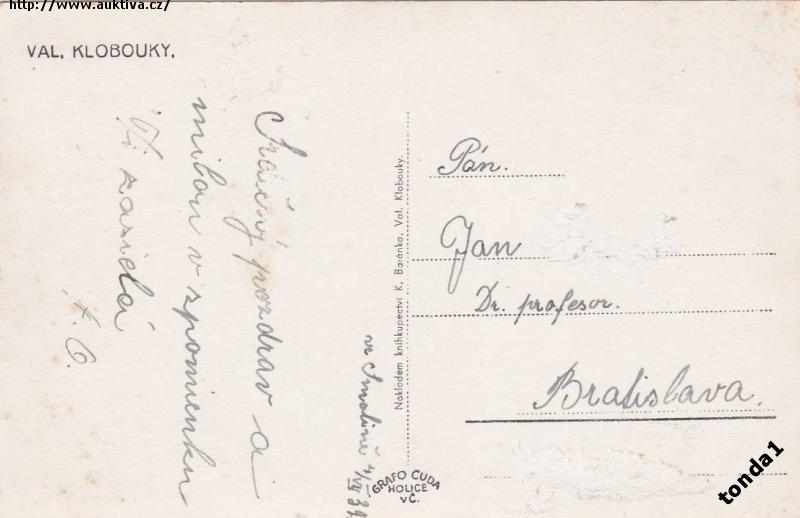 http://www.auktiva.cz/
VAL. KLOBOUKY.
Srdečný pozdrav a
milou v zpomienku
Ti zasiela
Nákladem knihkupectví K. Baránka, Val. Klobouky.
Pán.
Jan
Dr. profesor.
Bratislava.
GRAFO ČUDA
HOLICE
V Č.
tonda1